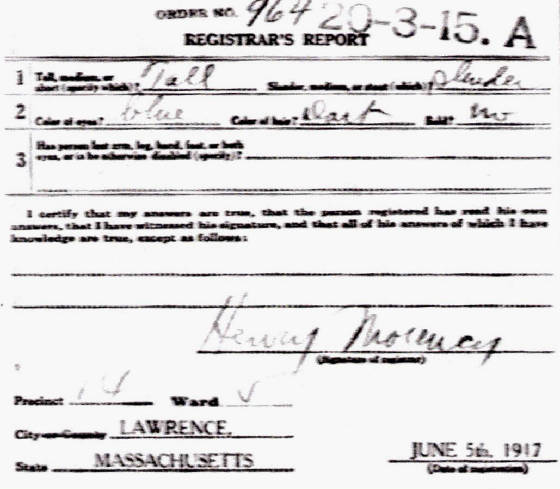 ORDER NO. 964 20-3-15. A
REGISTRAR'S REPORT
1 Tall, medium, or short (specify which)? Tall Slender, medium, or stout (which)? Slender
2 Color of eyes? blue Color of hair? Dark Bald? No
3 Has person lost arm, leg, hand, foot, or both
eyes, or is he otherwise disabled (specify)?
I certify that my answers are true, that the person registered has read his own
answers, that I have witnessed his signature, and that all of his answers of which I have
knowledge are true, except as follows:
Henry Morency
(Signature of registrar)
Precinct 14 Ward 5
City or County LAWRENCE,
State MASSACHUSETTS
JUNE 5th, 1917
(Date of registration)